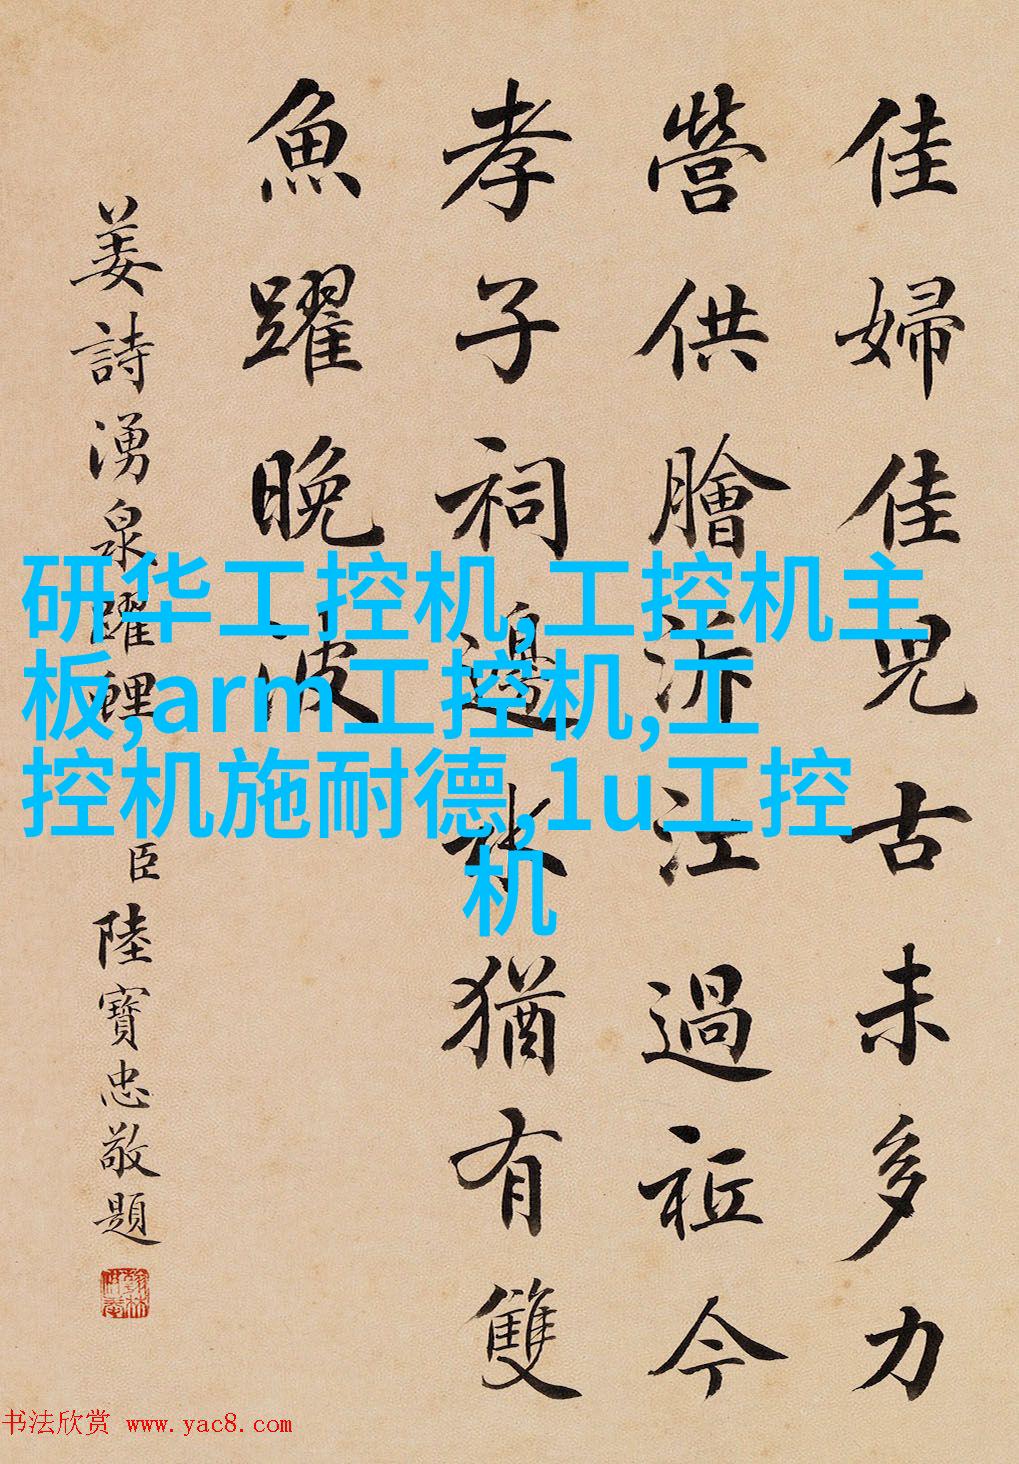 佳婦佳兒古未多力
營供膾泝江過祗今
孝子祠邊水猶有雙
魚躍晚波
姜詩湧泉躍鯉
臣陸寶忠敬題
研华工控机,工控机主
板,arm工控机,工
控机施耐德,1u工控
机
书法欣赏 www.yac8.com